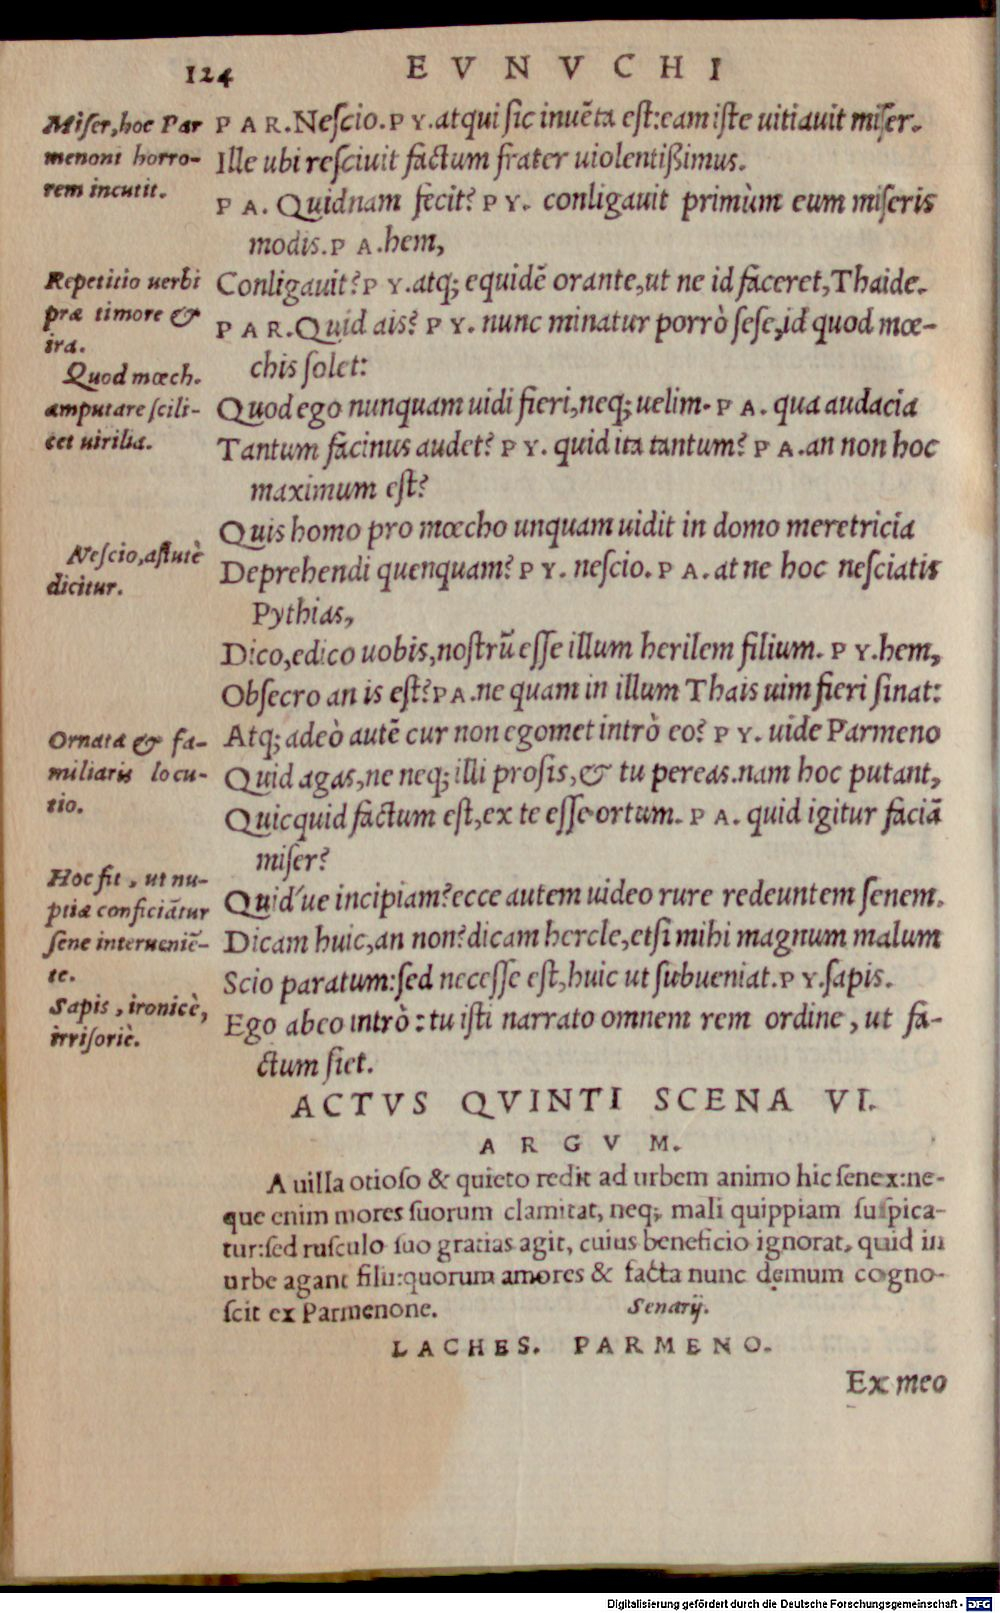 124 EVNVCHI
Miser, hoc Par
menoni horro-
rem incutit.
PAR. Nescio. PY. atqui sic inuẽta est: eam iste uitiauit miser.
Ille ubi resciuit factum frater uiolentißimus.
PA. Quidnam fecit? PY. conligauit primùm eum miseris
modis. PA. hem,
Repetitio uerbi
præ timore &
ira.
Conligauit? PY. atq; equidẽ orante, ut ne id faceret, Thaide.
PAR. Quid ais? PY. nunc minatur porrò sese, id quod mœ-
chis solet:
Quod mœch.
amputare scili-
cet uirilia.
Quod ego nunquam uidi fieri, neq; uelim. PA. qua audacia
Tantum facinus audet? PY. quid ita tantum? PA. an non hoc
maximum est?
Quis homo pro mœcho unquam uidit in domo meretricia
Nescio, astutè
dicitur.
Deprehendi quenquam? PY. nescio. PA. at ne hoc nesciatis
Pythias,
Dico, edico uobis, nostrũ esse illum herilem filium. PY. hem,
Obsecro an is est? PA. ne quam in illum Thais uim fieri sinat:
Atq; adeò autẽ cur non egomet intrò eo? PY. uide Parmeno
Ornata & fa-
miliaris locu-
tio.
Quid agas, ne neq; illi prosis, & tu pereas. nam hoc putant,
Quicquid factum est, ex te esse ortum. PA. quid igitur faciã
miser?
Hoc fit, ut nu-
ptiæ conficiãtur
sene interueniẽ-
te.
Quid´ue incipiam? ecce autem uideo rure redeuntem senem.
Dicam huic, an non? dicam hercle, etsi mihi magnum malum
Scio paratum: sed necesse est, huic ut subueniat. PY. sapis.
Sapis, ironicè,
irrisoriè.
Ego abeo intrò: tu isti narrato omnem rem ordine, ut fa-
ctum siet.
ACTVS QVINTI SCENA VI.
ARGVM.
A uilla otioso & quieto redit ad urbem animo hic senex: ne-
que enim mores suorum clamitat, neq; mali quippiam suspica-
tur: sed rusculo suo gratias agit, cuius beneficio ignorat, quid in
urbe agant filii: quorum amores & facta nunc demum cogno-
scit ex Parmenone. Senarij.
LACHES. PARMENO.
Ex meo
Digitalisierung gefördert durch die Deutsche Forschungsgemeinschaft - DFG